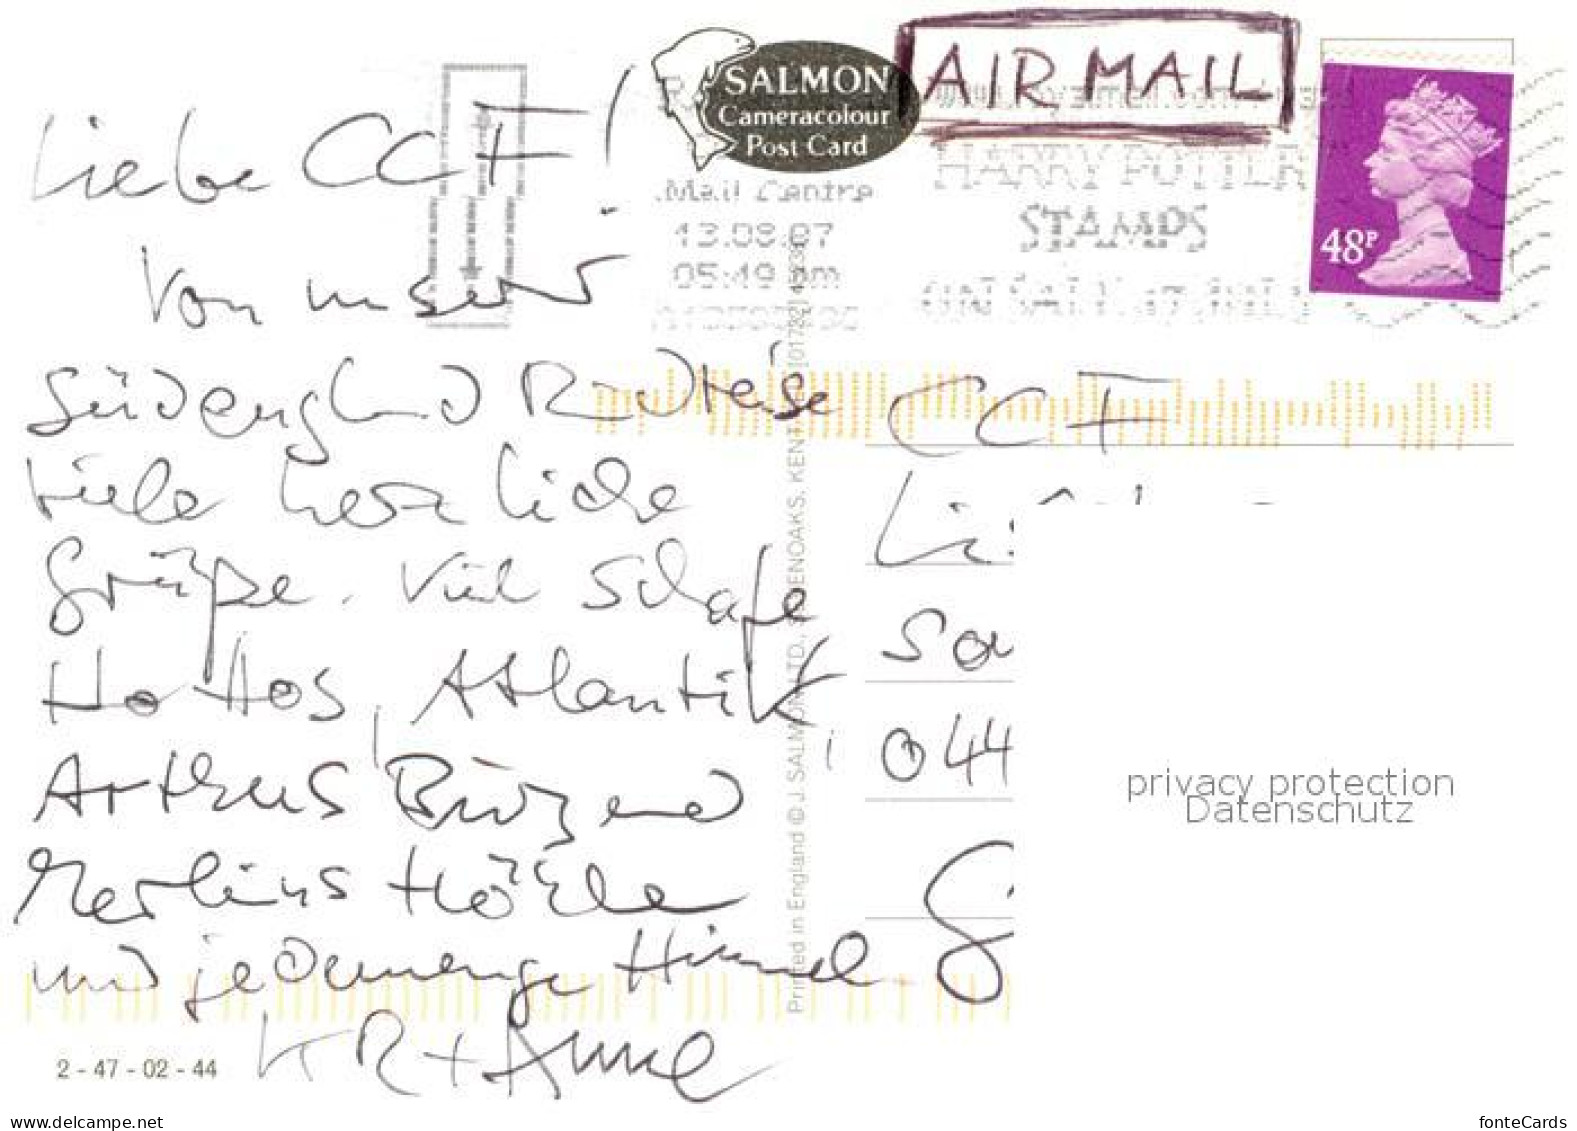 AIR MAIL
SALMON
Cameracolour
Post Card
Mail Centre
13.08.07
05:49 pm
HARRY POTTER
STAMPS
48P
Liebe CCF!
Von unserer
Südengland Radreise
viele herzliche
Grüße. Viel Schafe
HoHos, Atlantik,
Arthus Burg und
Merlins Höhle
und jedemenge Himmel
KR + Anne
CCF
Li
Sa
044
G
Printed in England © J. SALMON LTD., SEVENOAKS, KENT
2 - 47 - 02 - 44
privacy protection
Datenschutz
www.delcampe.net
fonteCards